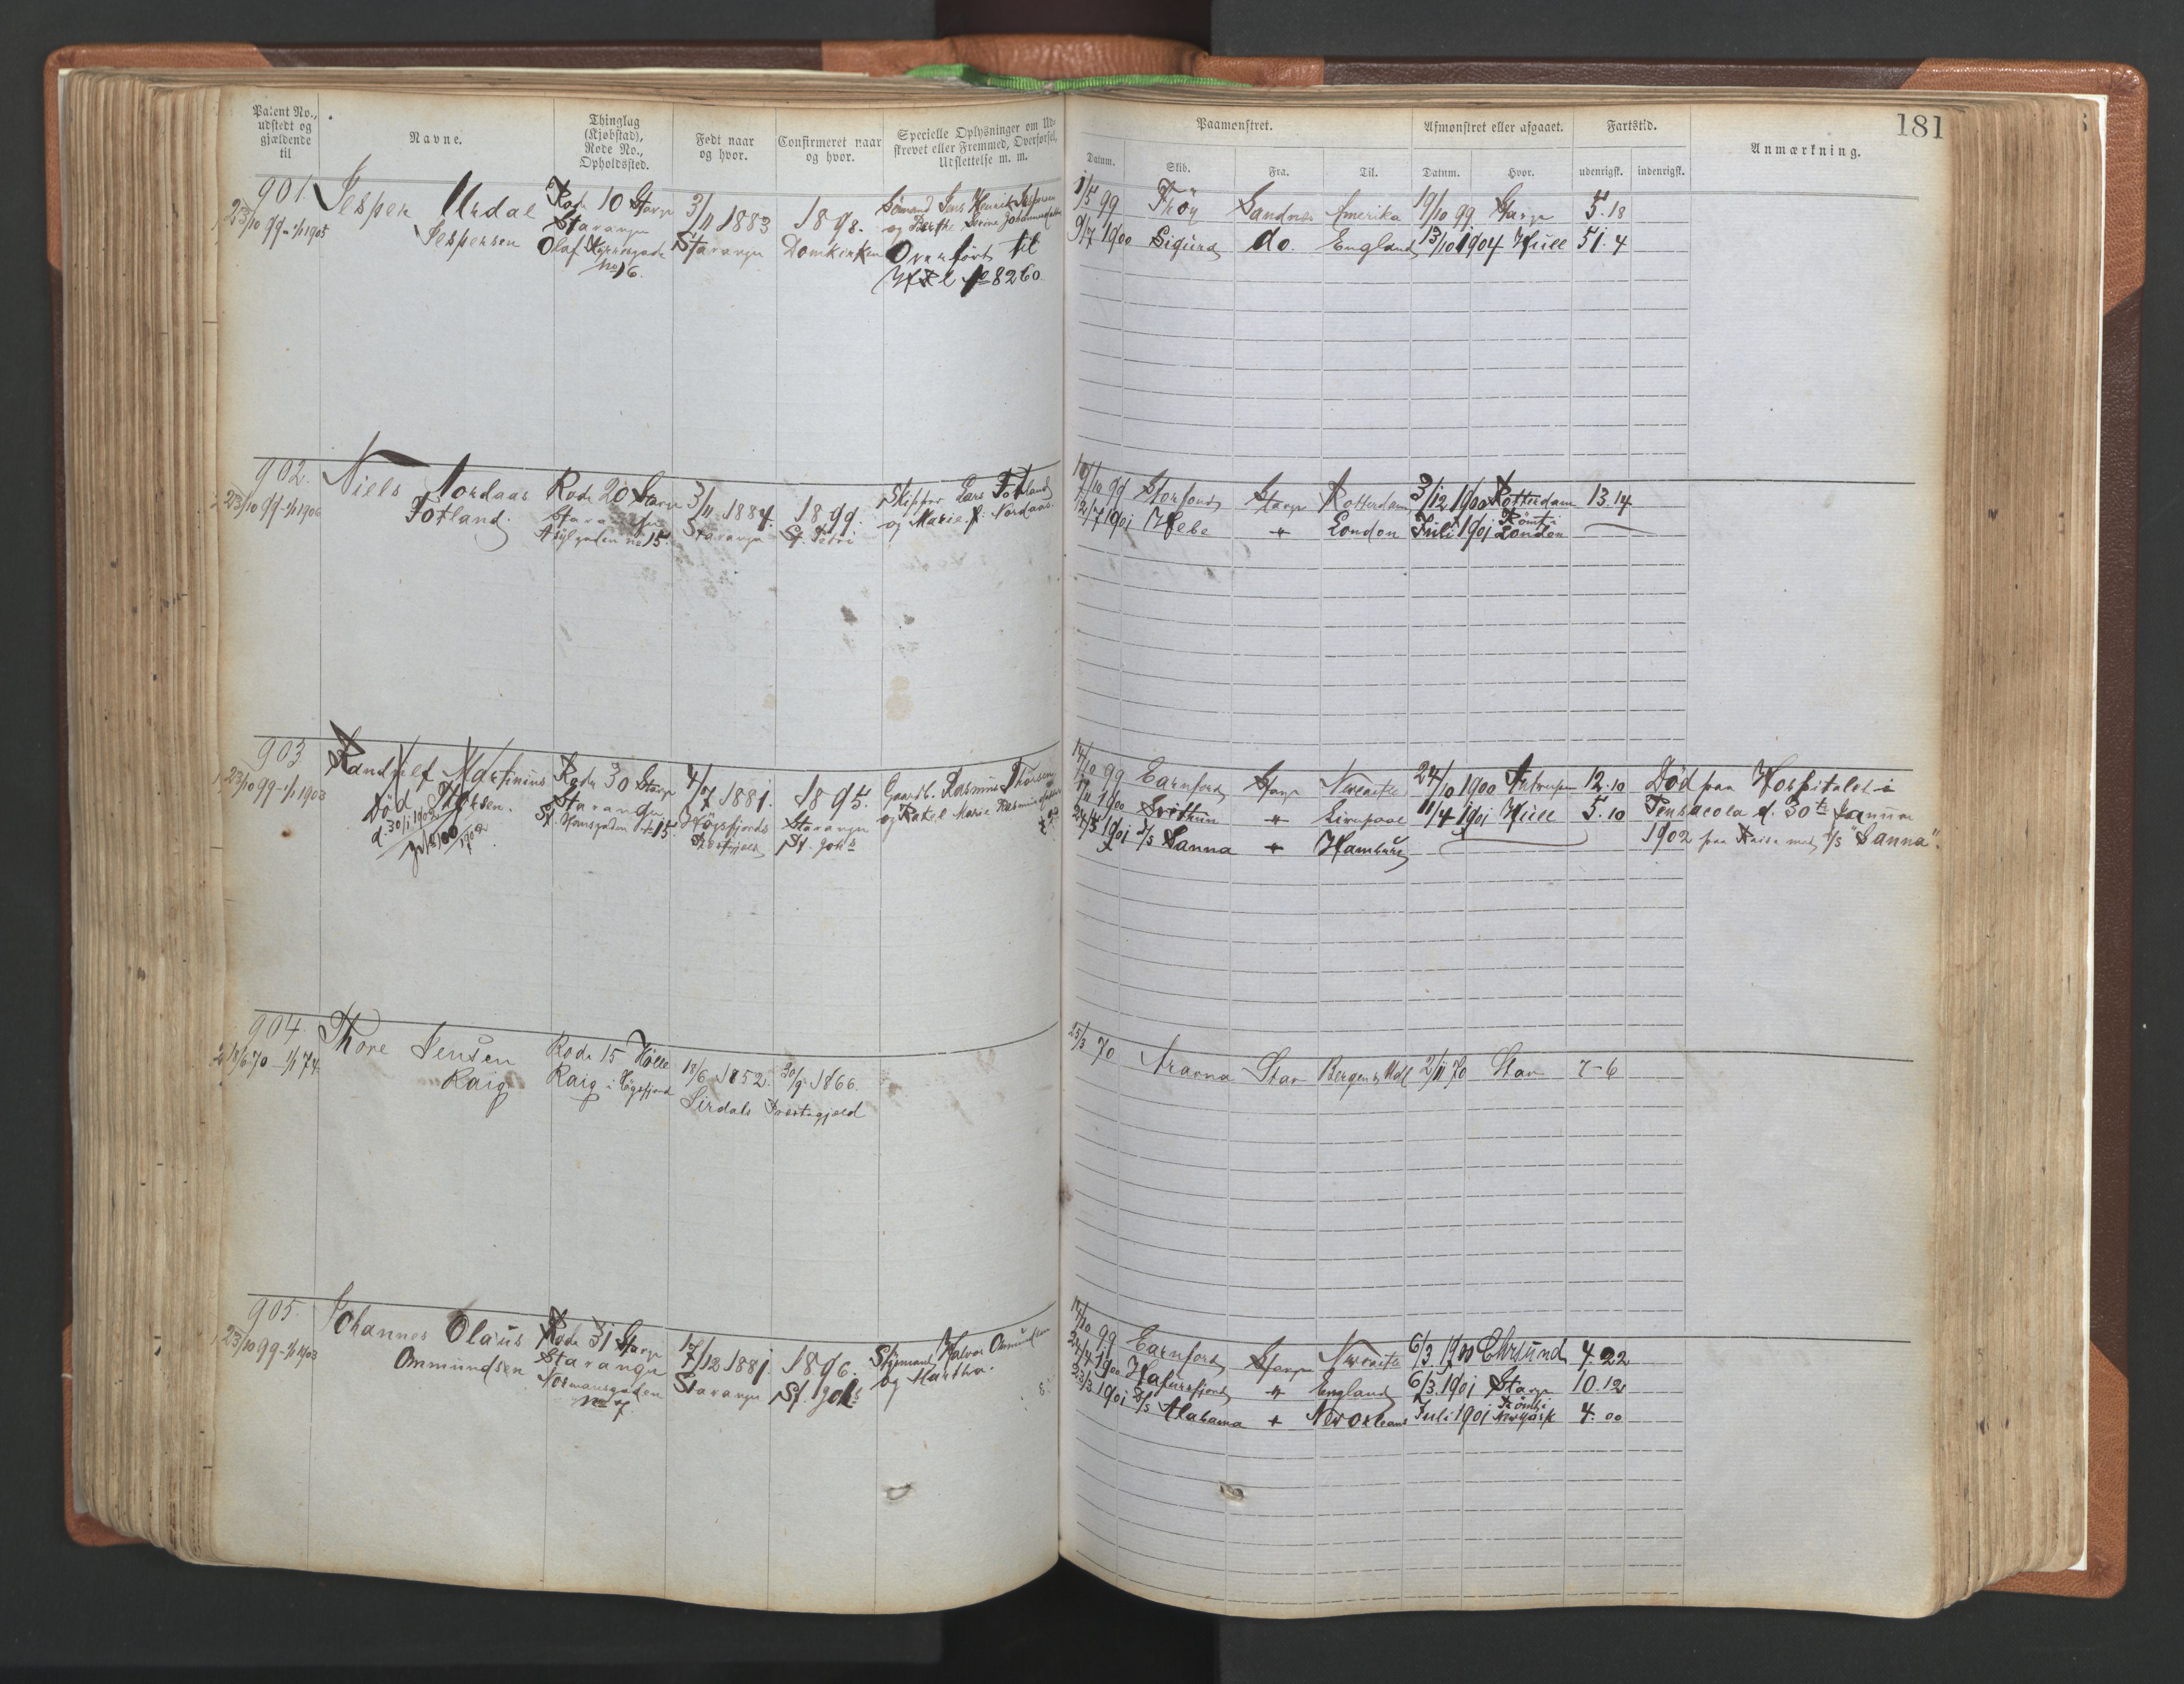 Patent No., udstedt og gjældende til
Navne.
Thinglag (Kjøbstad), Rode No., Opholdssted.
Født naar og hvor.
Confirmeret naar og hvor.
Specielle Oplysninger om Udskrevet eller Fremmed, Overførsel, Udslettelse m. m.
Paamønstret.
Afmønstret eller afgaaet.
Fartstid.
Anmærkning.
181
Datum.
Skib.
Fra.
Til.
Datum.
Hvor.
udenrigsk.
indenrigsk.
901.
23/10 99 - 1/1 1905
Jesper Urdal
Jespersen
Rode 10 Stavgr
Stavanger
Olaf
No 16.
3/11 1883
Stavanger
1898.
Domkirken
Sømand Jens Henrik Jespersen
og Berthe Serine
Overført til
No 8260.
1/5 99 Thöy Sandnes Amerika 19/10 99 Stavgr 5.18
9/7 1900 Sigurd do. England 13/10 1904 Hull 51.4
902.
23/10 99 - 1/1 1906
Niels Nordaas
Fotland.
Rode 20 Stavgr
Stavanger
Asylgaden no 15
3/11 1884.
Stavanger
1899.
St. Petri
Skipper Lars Fotland
og Marie f. Nordaas
19/10 99 Stavgr Rotterdam 3/12 1900 Rotterdam 13.14
12/7 1901 Hebe " London Juli 1901 Rømt i London
903
23/10 99 - 1/1 1903
Randulf Martinius
Thorsen.
Död
d. 30/1 1902
Rode 30 Stavgr
Stavanger
St. Hansgaden 15
4/7 1881.
Högsfjords
Prestegjeld
1895.
Stavanger
St. Johs
Gaardb. Rasmus Thorsen
og Rakel Marie
14/10 99 Earnford Stavgr Newcastle 24/10 1900 Antwerpen 12.10
1900 Svithun " Liverpool 11/4 1901 Hull 5.10
24/5 1901 S/s Sanna " Hamburg
Död paa Hospitalet i
Pensacola d. 30te Januar
1902 paa Reise med S/s "Sanna".
904.
18/6 70 - 1/1 74
Thore Jensen
Raig
Rode 15 Hölle
Raig i Högsfjord
18/6 1852.
30/9 1866.
Sirdals Prestegjeld
25/3 70 Stav Bergen 2/11 70 Stav 7-6
905.
23/10 99 - 1/1 1903
Johannes Olaus
Ommundsen
Rode 31 Stavgr
Stavanger
Normansgaden
No 7
17/12 1881.
Stavanger
1896.
St. Johs
Styrmand Halvor Ommundsen
og Martha.
14/10 99. Earnford Stavgr Newcastle 6/3 1900 Chrsund 4.22
24/4 1900 Hafursfjord " England 6/3 1901 Stavgr 10.12
23/3 1901 S/s Alabama " New Orleans Juli 1901 Rømt i New York 4.00